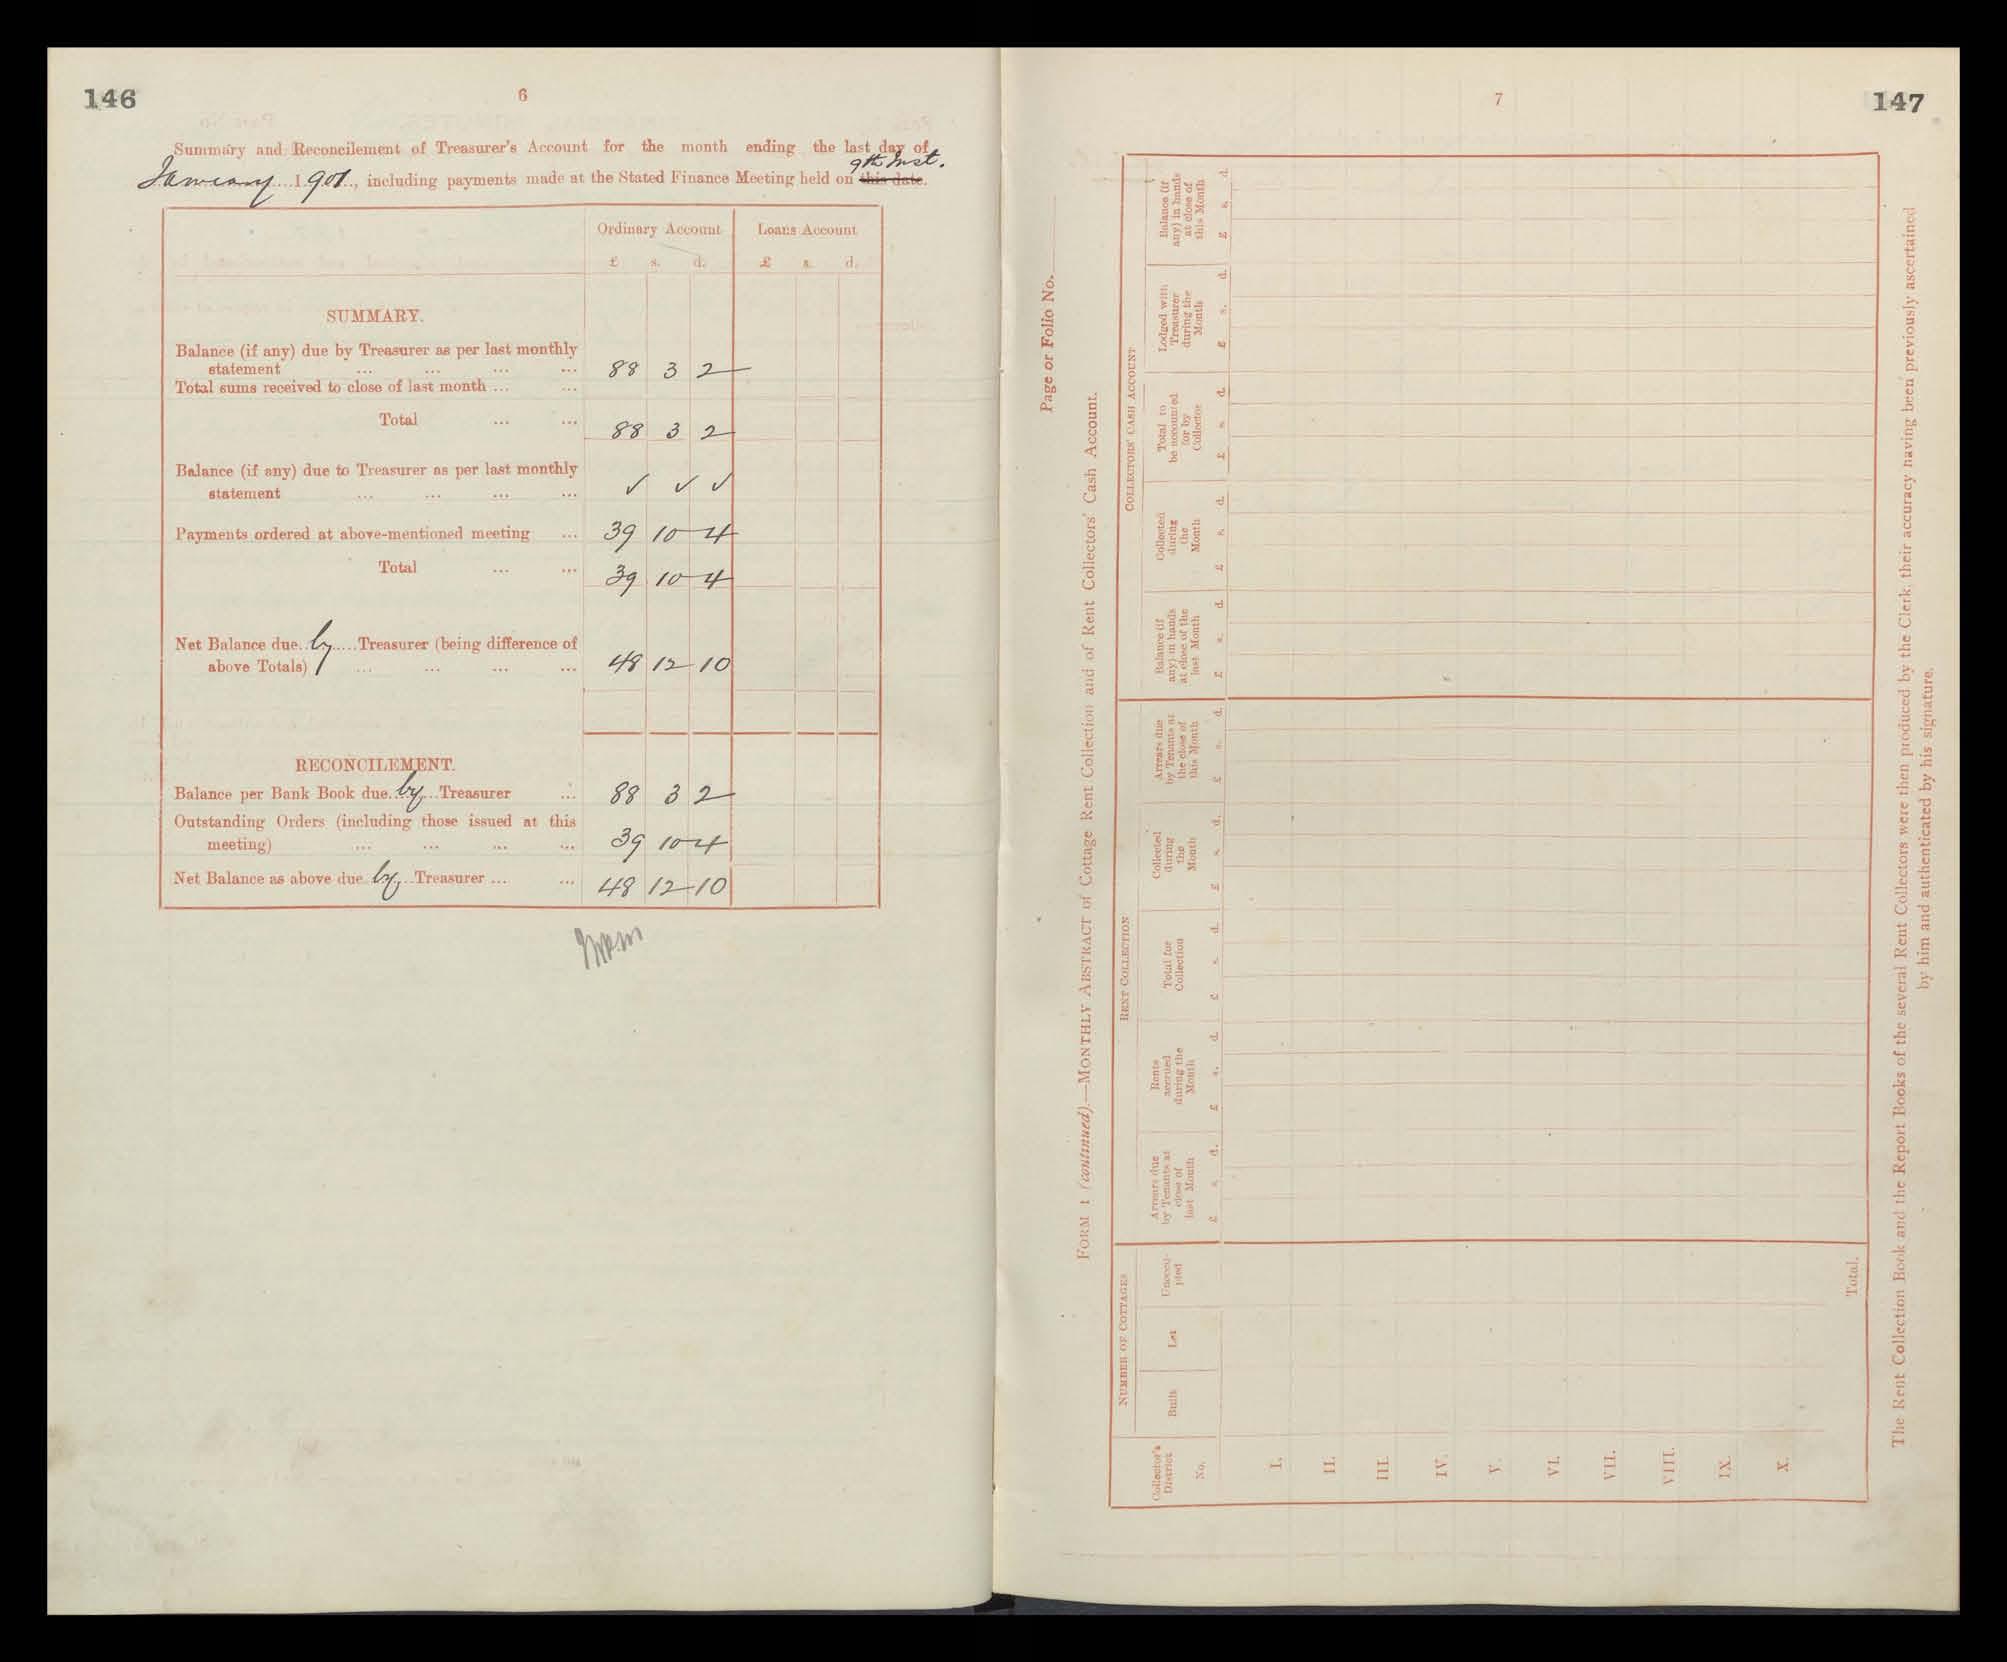 146
6
Summary and Reconcilement of Treasurer's Account for the month ending the last day of
9th Inst.
January 1901, including payments made at the Stated Finance Meeting held on this date.
Ordinary Account Loans Account
£ s. d. £ s. d.
SUMMARY.
Balance (if any) due by Treasurer as per last monthly
statement ... ... ... ... 88 3 2
Total sums received to close of last month ... ...
Total ... ... 88 3 2
Balance (if any) due to Treasurer as per last monthly
statement ... ... ... ... ✓ ✓ ✓
Payments ordered at above-mentioned meeting ... 39 10 4
Total ... ... 39 10 4
Net Balance due by Treasurer (being difference of
above Totals) ... ... ... ... 48 12 10
RECONCILEMENT.
Balance per Bank Book due by Treasurer ... 88 3 2
Outstanding Orders (including those issued at this
meeting) ... ... ... ... 39 10 4
Net Balance as above due by Treasurer ... ... 48 12 10
7
147
Page or Folio No.
FORM 1 (continued).—MONTHLY ABSTRACT of Cottage Rent Collection and of Rent Collectors' Cash Account.
NUMBER OF COTTAGES
RENT COLLECTION
COLLECTORS' CASH ACCOUNT
Collector's
District
No.
Built
Let
Unoccu-
pied
Arrears due
by Tenants at
close of
last Month
£ s. d.
Rents
accrued
during the
Month
£ s. d.
Total for
Collection
£ s. d.
Collected
during
the
Month
£ s. d.
Arrears due
by Tenants at
the close of
this Month
£ s. d.
Balance (if
any) in hands
at close of the
last Month
£ s. d.
Collected
during
the
Month
£ s. d.
Total to
be accounted
for by
Collector
£ s. d.
Lodged with
Treasurer
during the
Month
£ s. d.
Balance (if
any) in hands
at close of
this Month
£ s. d.
I.
II.
III.
IV.
V.
VI.
VII.
VIII.
IX.
X.
Total.
The Rent Collection Book and the Report Books of the several Rent Collectors were then produced by the Clerk, their accuracy having been previously ascertained
by him and authenticated by his signature.